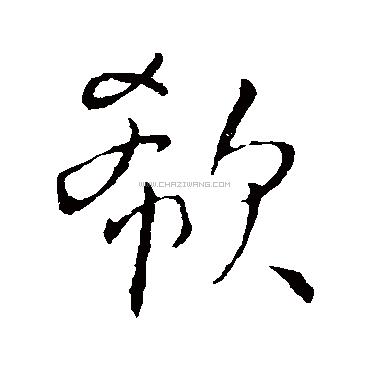 欷
WWW.CHAZIWANG.COM